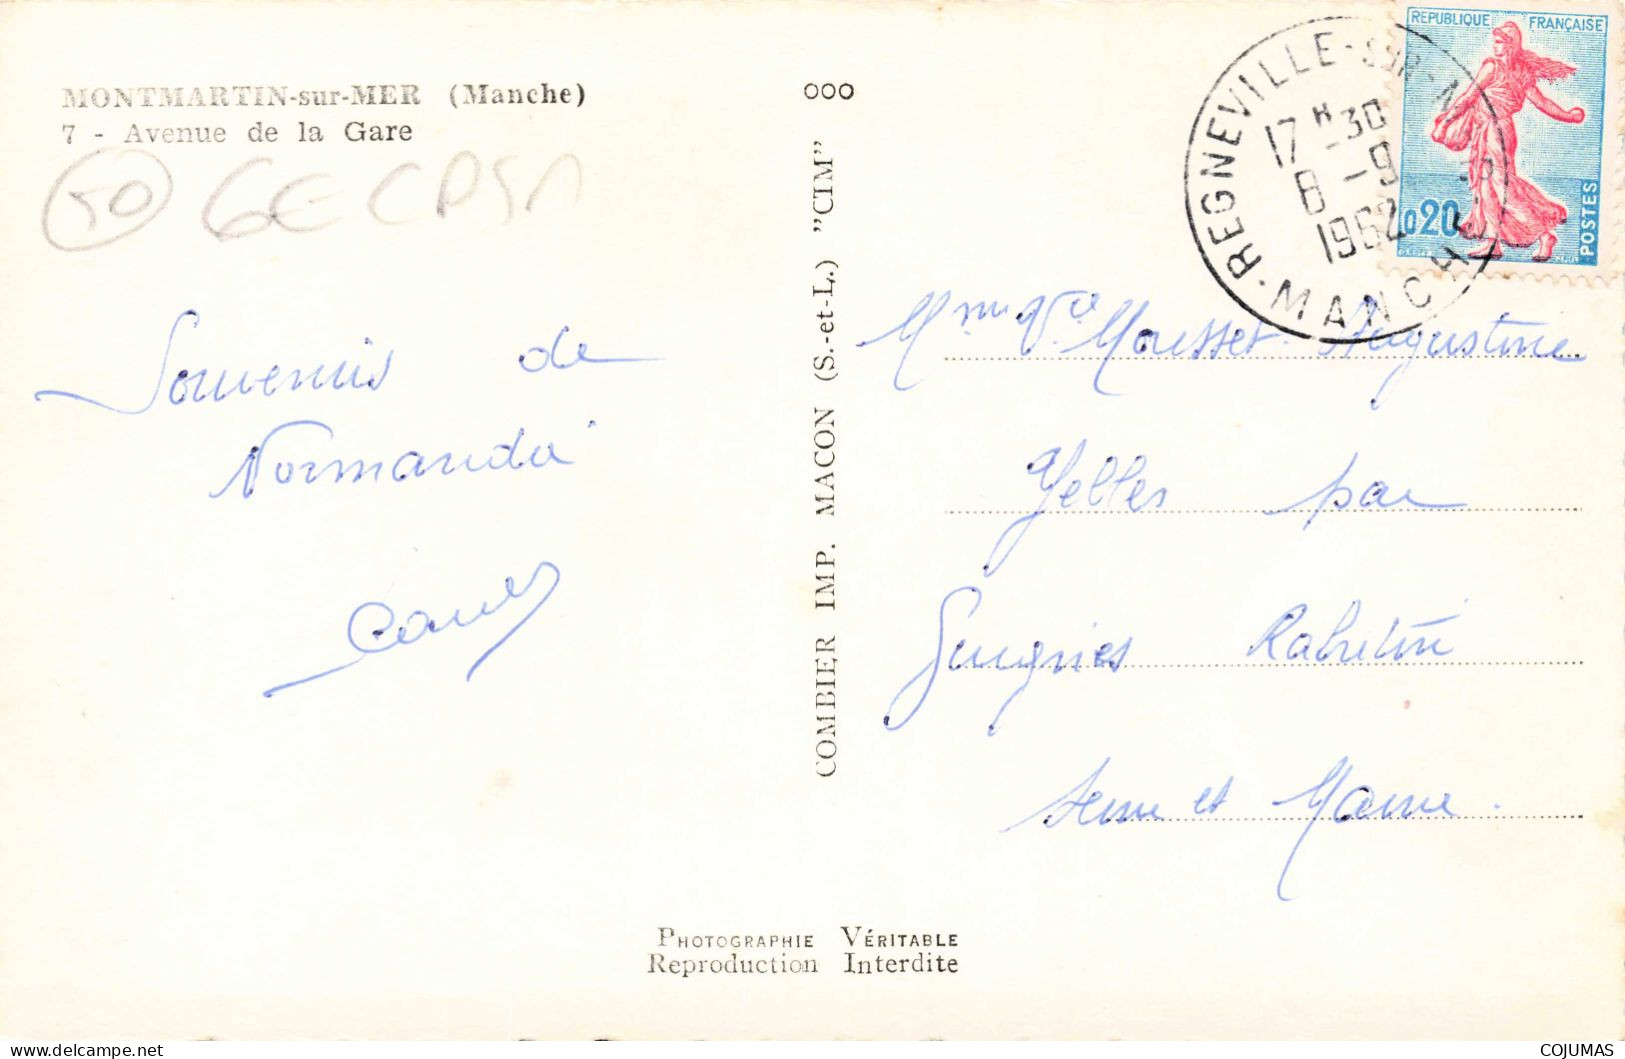 MONTMARTIN-sur-MER (Manche)
7 - Avenue de la Gare
50 GECP51
Souvenirs de
Normandie
000
COMBIER IMP. MACON (S.-et-L.) "CIM"
REPUBLIQUE FRANÇAISE
0,20
POSTES
REGNEVILLE-SUR-MER
17 H 30
8 -9
1962
MANCHE
Mme Vve Mousset Augustine
par
Rabutin
Seine et Marne.
PHOTOGRAPHIE VÉRITABLE
Reproduction Interdite
delcampe.net
COJUMAS